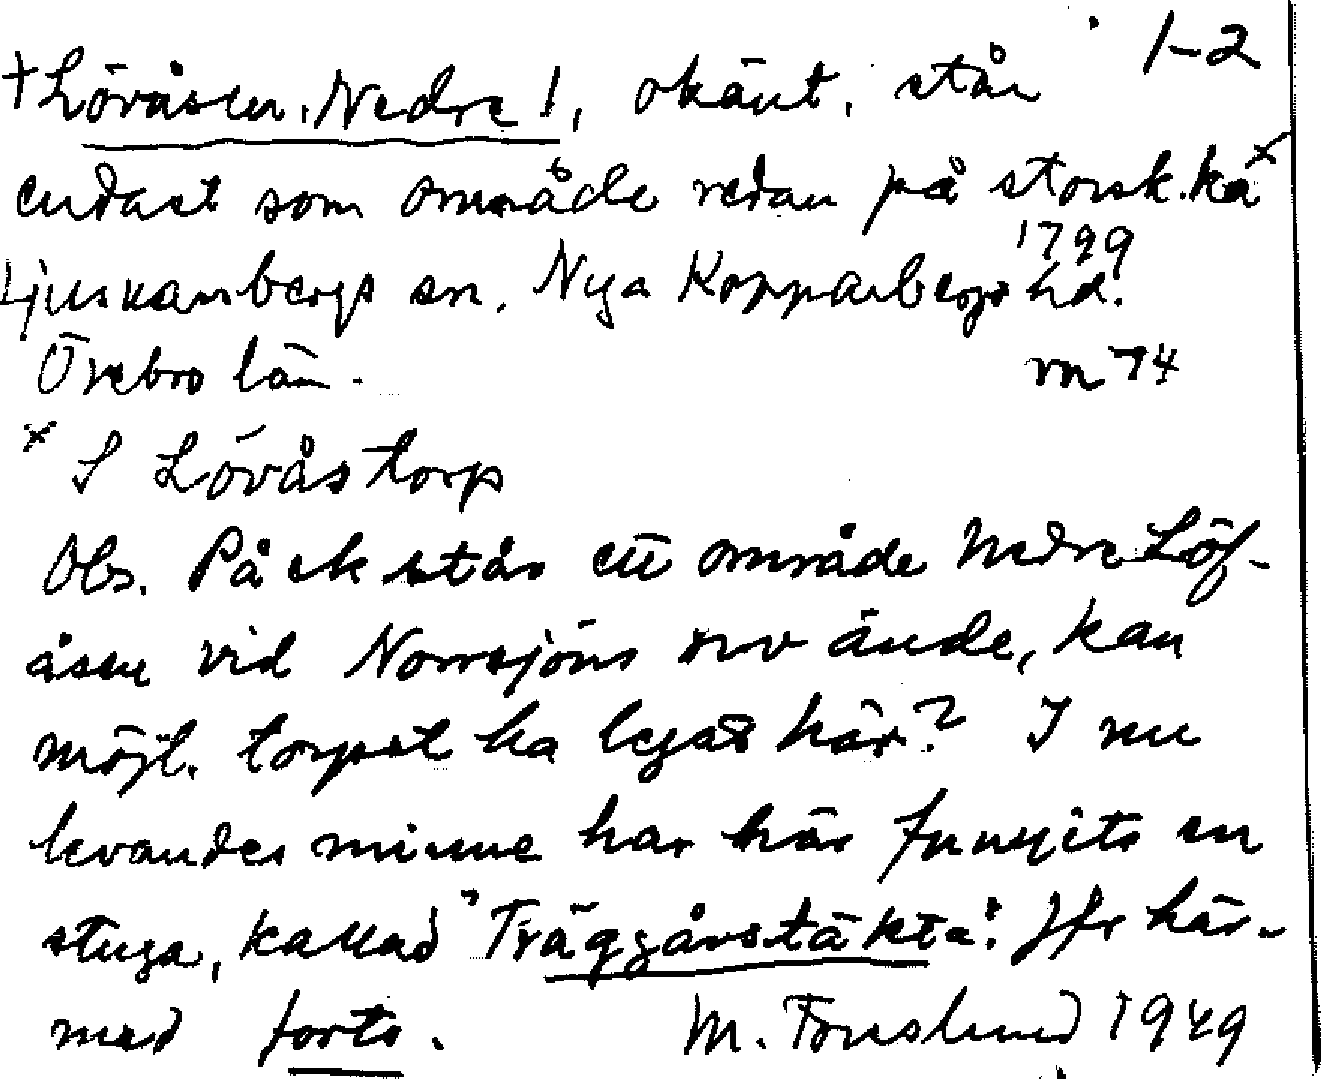 1-2
†Lövåsen, Nedre 1, okänt, står
endast som område redan på storsk.ka x
1799
Ljusnarsbergs sn. Nya Kopparbergs hd.
Örebro län. m 74
x S Lövåstorp
Obs. På ek står ett område Nedre Löf-
åsen vid Norrsjöns nv ände, kan
möjl. torpet ha legat här? I nu
levandes minne har här funnits en
stuga, kallad "Träggårstäkta". Jfr här-
med forts. M. 1949